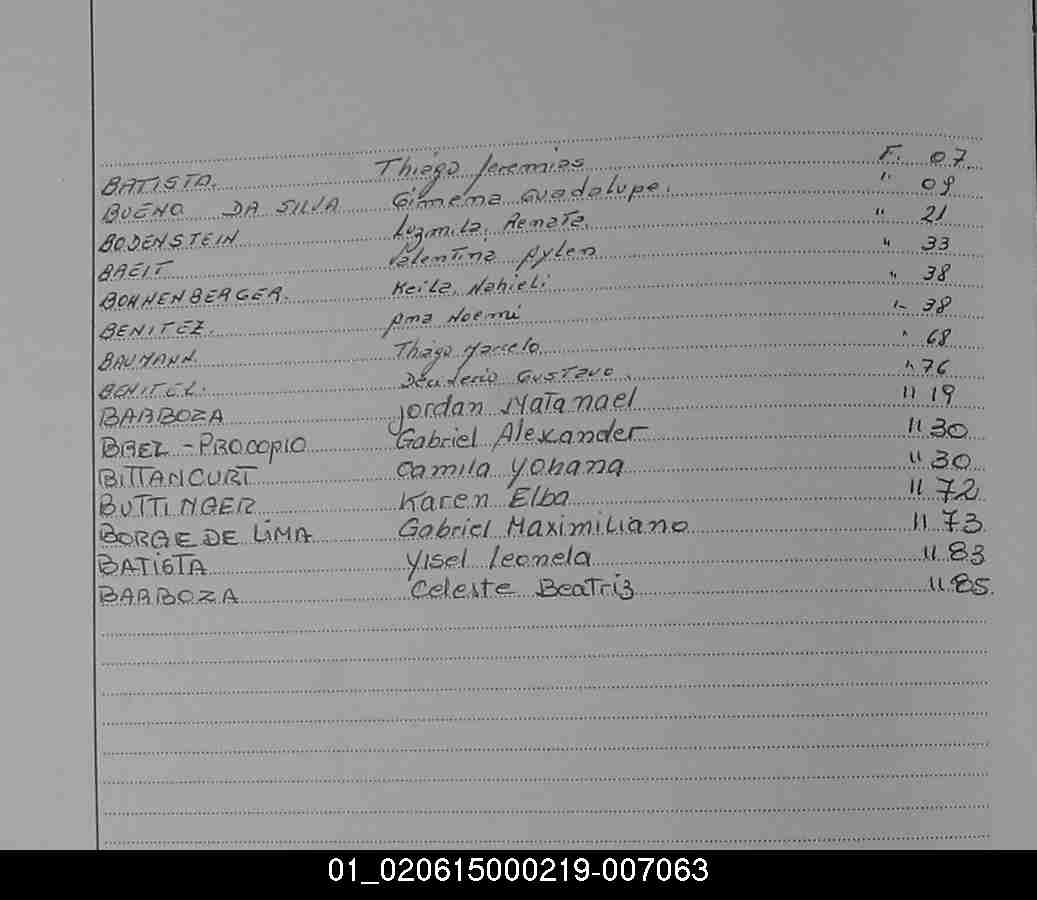 BATISTA. Thiago Jeremias F. 07
BUENO DA SILVA Gimena Guadalupe. " 09
BODENSTEIN Luzmila Renata. " 21
BREIT Valentina Aylen " 33
BOHNENBERGER. Keila Nahieli " 38
BENITEZ. Ana Noemi " 38
BAUMANN. Thiago Marcelo " 68
BENITEZ. Gustavo " 76
BARBOZA Jordan Natanael " 19
BAEZ - PROCOPIO Gabriel Alexander " 30
BITTANCURT Camila Yohana " 30
BUTTINGER Karen Elba " 72
BORGE DE LIMA Gabriel Maximiliano " 73
BATISTA Yisel Leonela " 83
BARBOZA Celeste Beatriz " 85.
01_020615000219-007063